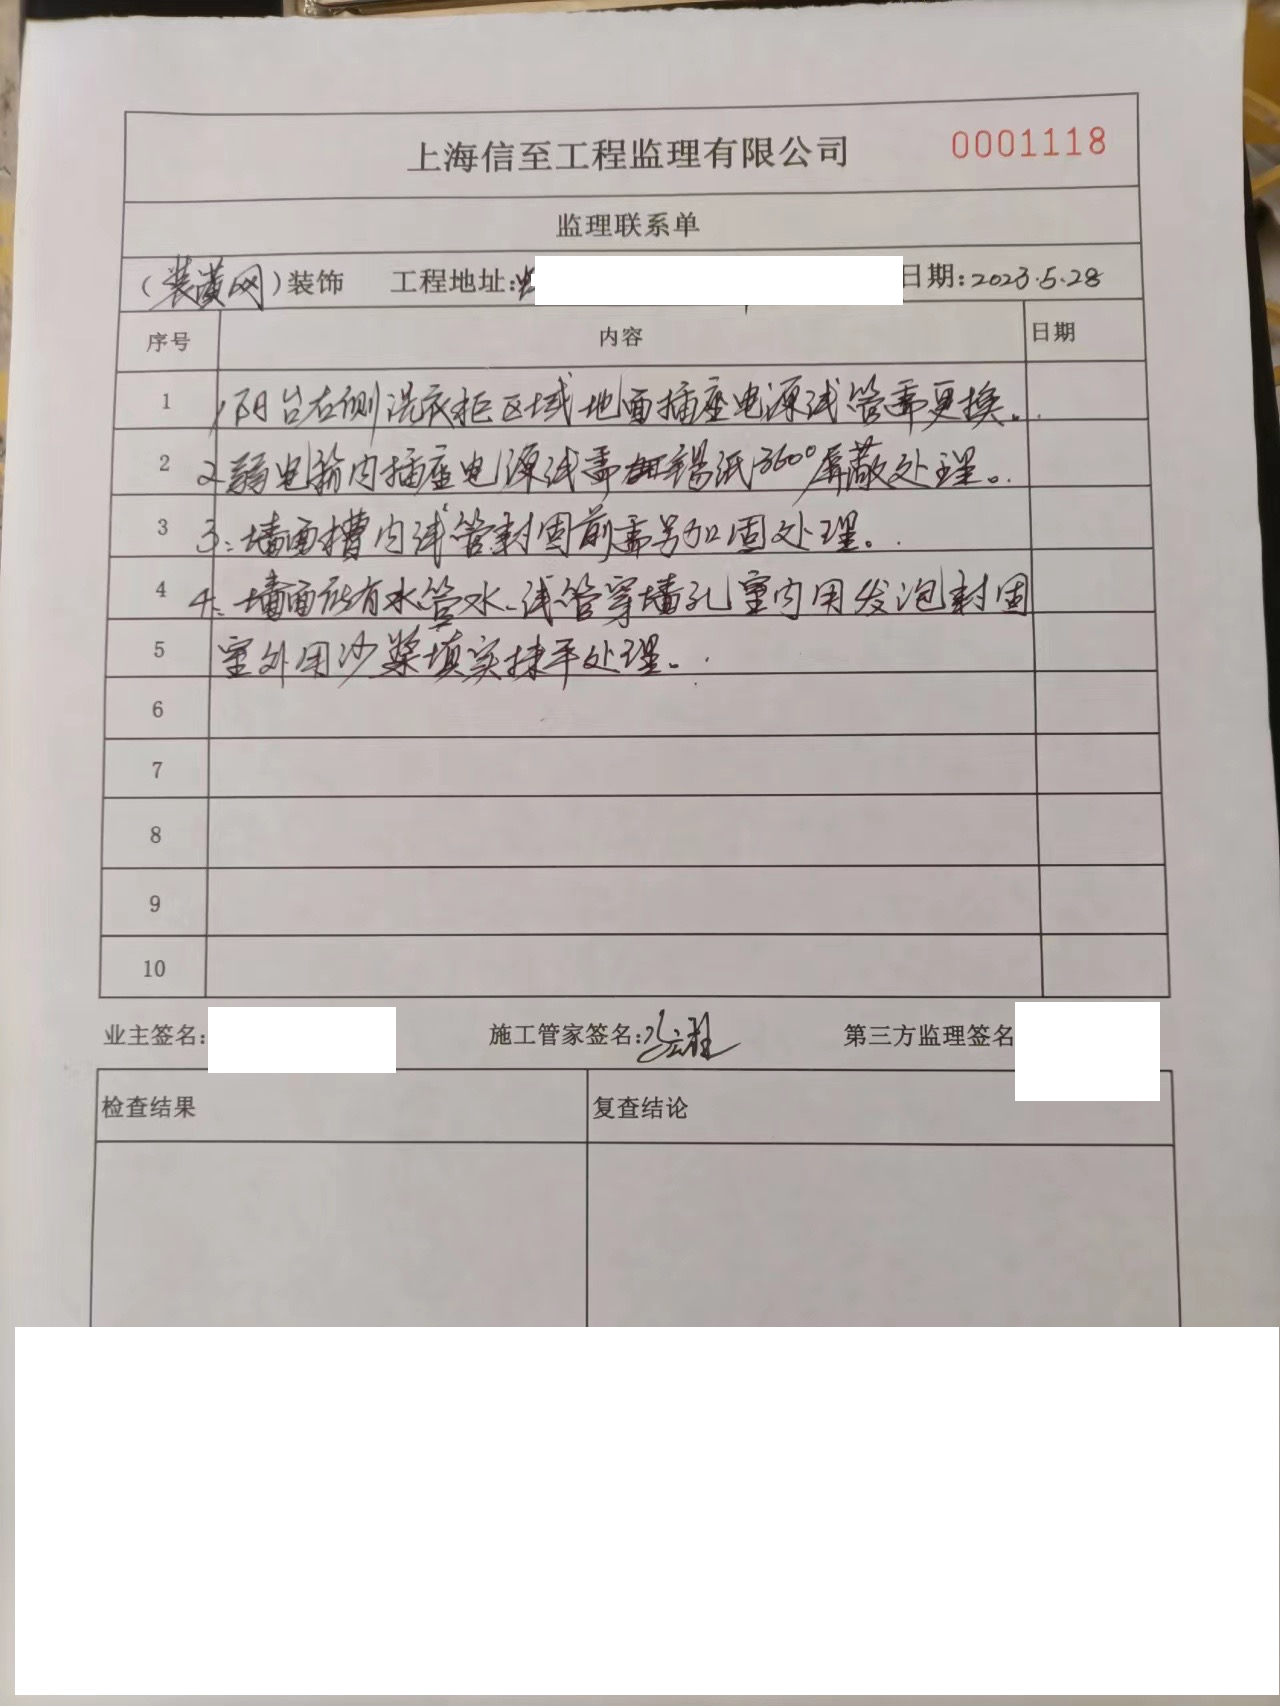 上海信至工程监理有限公司 0001118
监理联系单
(装潢网)装饰 工程地址: 日期:2023.5.28
序号 内容 日期
1 1、阳台右侧洗衣柜区域地面插座电源试管需更换。
2 2、弱电箱内插座电源试需加锡纸360°屏蔽处理。
3 3、墙面槽内试管封固前需另加固处理。
4 4、墙面所有水管水、试管穿墙孔室内用发泡封固
5 室外用沙浆填实抹平处理。
6
7
8
9
10
业主签名: 施工管家签名: 第三方监理签名
检查结果 复查结论